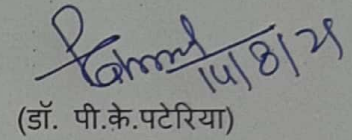 14/8/25
(डॉ. पी.के.पटेरिया)